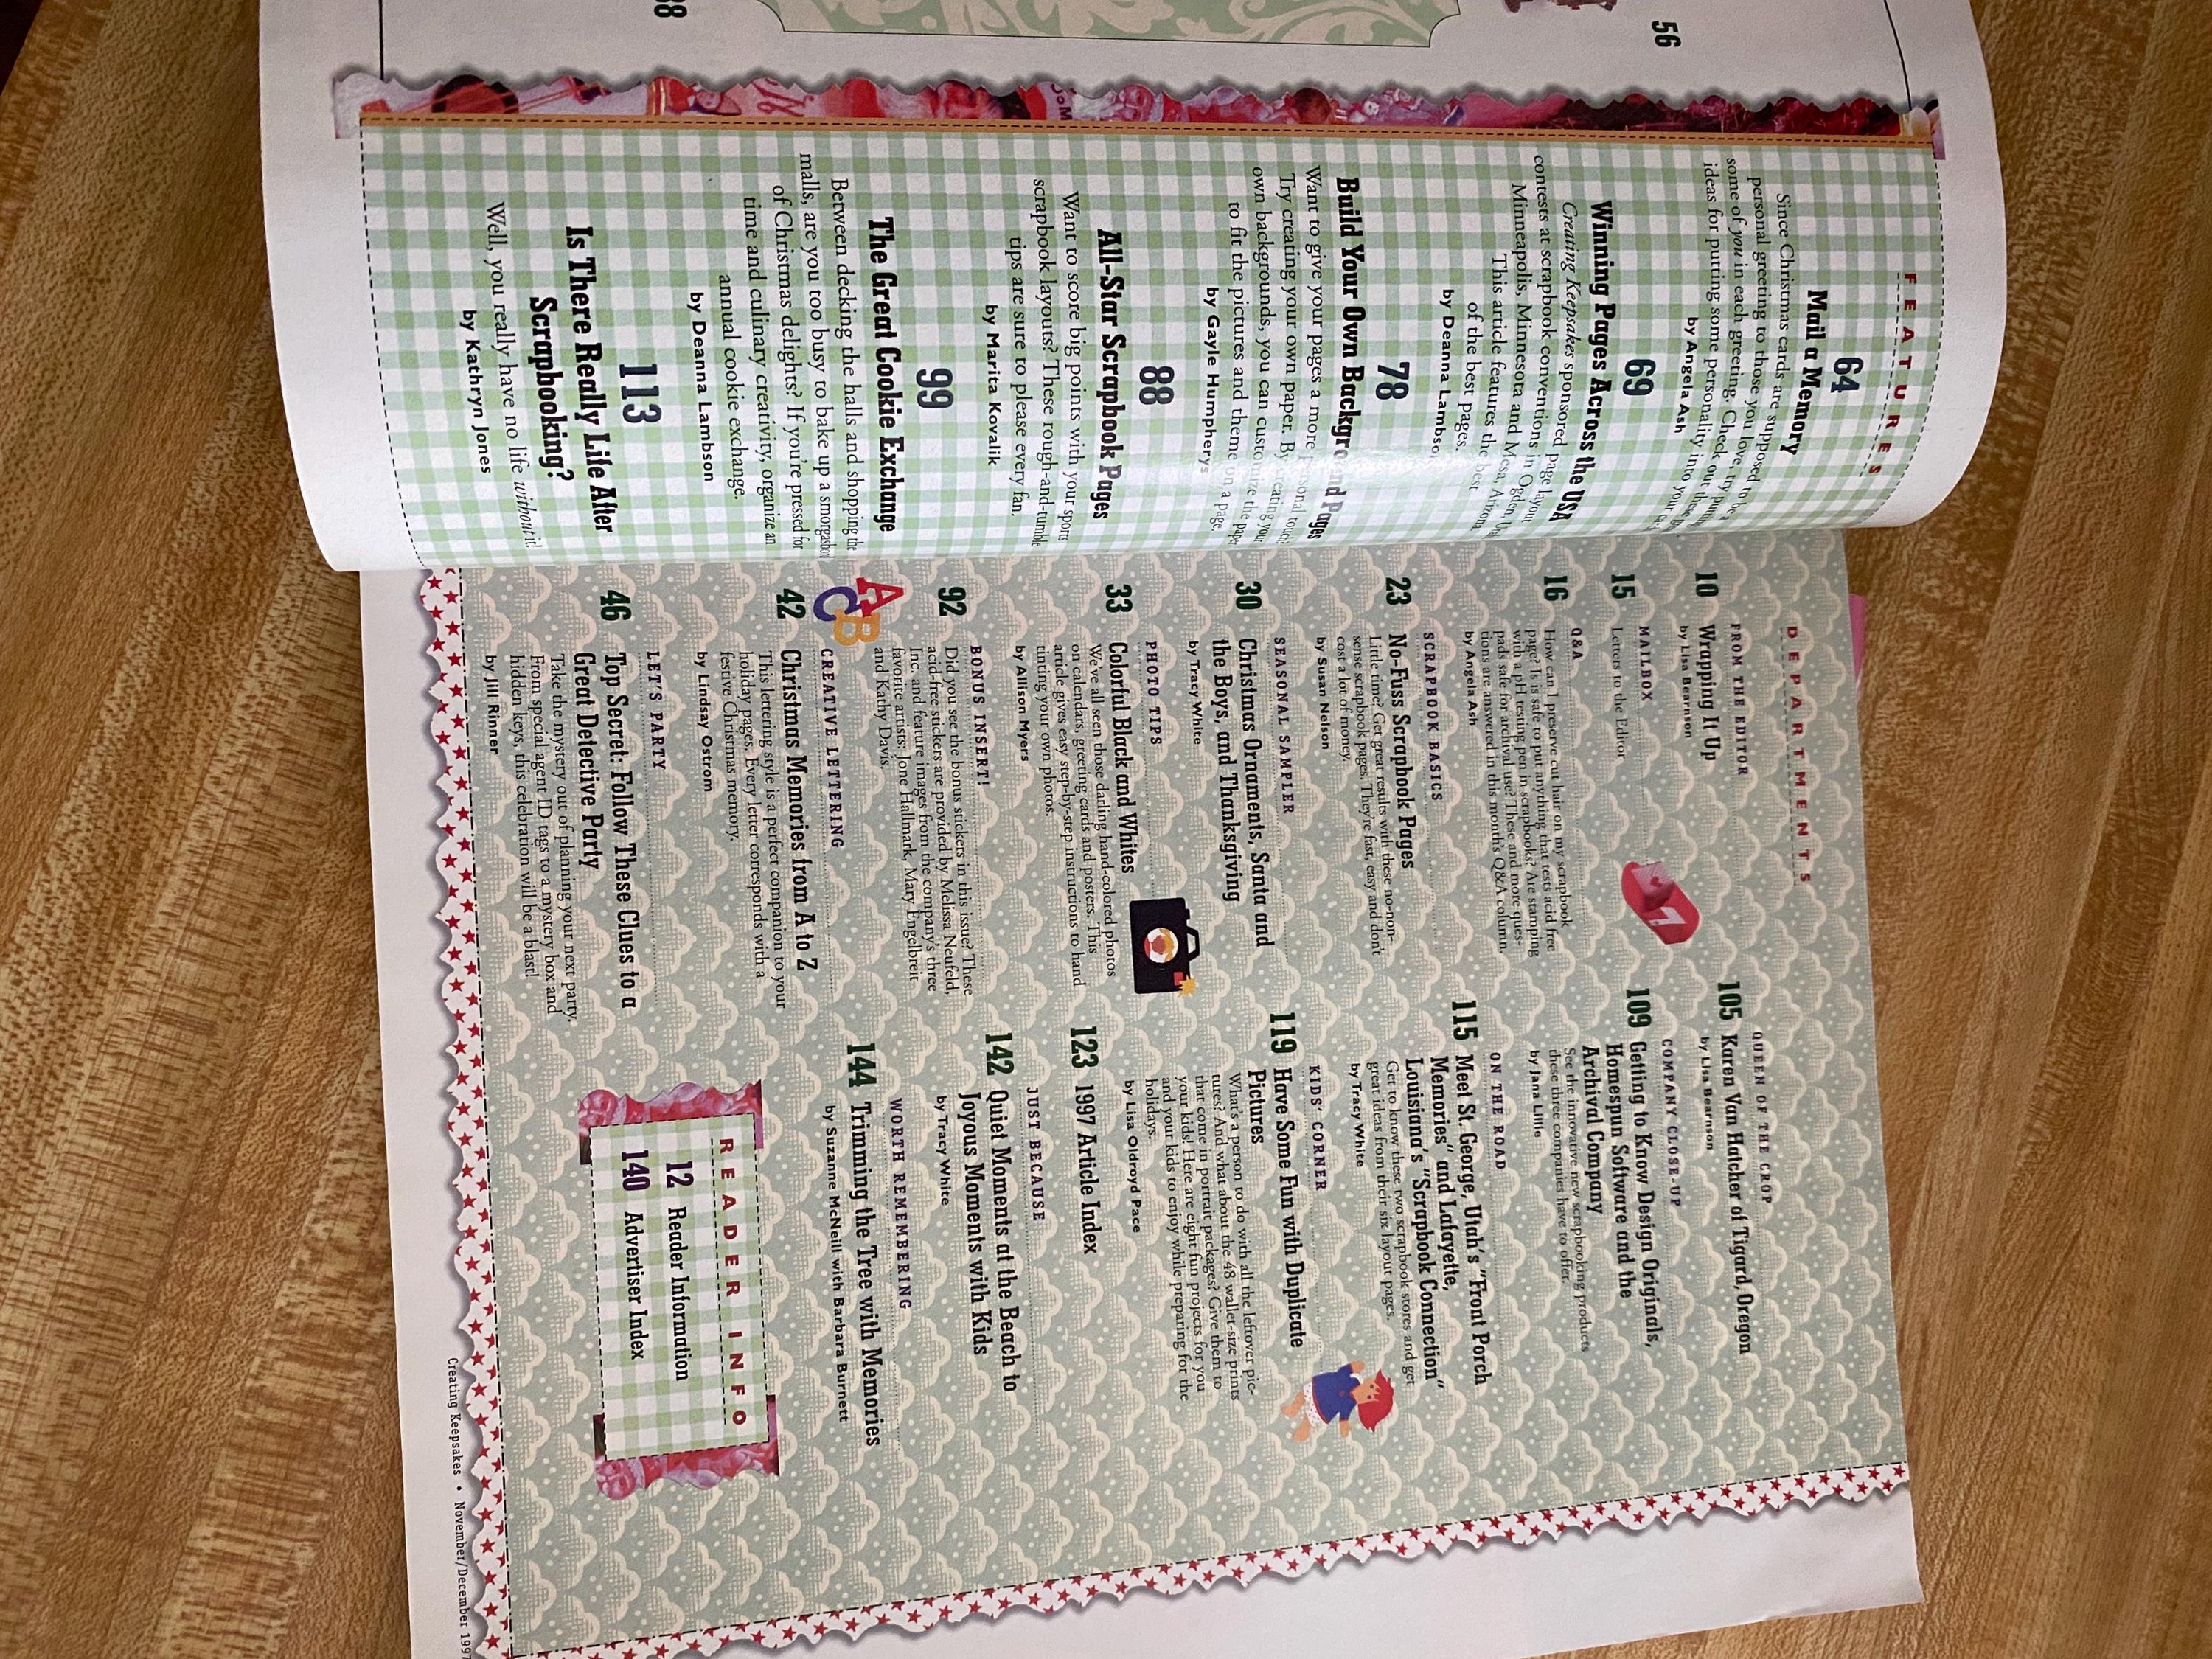 56
88
FEATURES
64
Mail a Memory
Since Christmas cards are supposed to be a
personal greeting to those you love, try putting
some of you in each greeting. Check out these
ideas for putting some personality into your
by Angela Ash
69
Winning Pages Across the USA
Creating Keepsakes sponsored page layout
contests at scrapbook conventions in Ogden,
Minneapolis, Minnesota and Mesa, Arizona.
This article features the best
of the best pages.
by Deanna Lambson
78
Build Your Own Background Pages
Want to give your pages a more personal touch?
Try creating your own paper. By creating your
own backgrounds, you can customize the paper
to fit the pictures and theme on a page.
by Gayle Humpherys
88
All-Star Scrapbook Pages
Want to score big points with your sports
scrapbook layouts? These rough-and-tumble
tips are sure to please every fan.
by Marita Kovalik
99
The Great Cookie Exchange
Between decking the halls and shopping the
malls, are you too busy to bake up a smorgasbord
of Christmas delights? If you're pressed for
time and culinary creativity, organize an
annual cookie exchange.
by Deanna Lambson
113
Is There Really Life After
Scrapbooking?
Well, you really have no life without it!
by Kathryn Jones
DEPARTMENTS
FROM THE EDITOR
10 Wrapping It Up
by Lisa Bearnson
MAILBOX
15 Letters to the Editor
Q&A
16 How can I preserve cut hair on my scrapbook
page? Is is safe to put anything that tests acid free
with a pH testing pen in scrapbooks? Are stamping
pads safe for archival use? These and more ques-
tions are answered in this month's Q&A column.
by Angela Ash
SCRAPBOOK BASICS
23 No-Fuss Scrapbook Pages
Little time? Get great results with these no-non-
sense scrapbook pages. They're fast, easy and don't
cost a lot of money.
by Susan Nelson
SEASONAL SAMPLER
30 Christmas Ornaments, Santa and
the Boys, and Thanksgiving
by Tracy White
PHOTO TIPS
33 Colorful Black and Whites
We've all seen those darling hand-colored photos
on calendars, greeting cards and posters. This
article gives easy step-by-step instructions to hand
tinting your own photos.
by Allison Myers
BONUS INSERT!
92 Did you see the bonus stickers in this issue? These
acid-free stickers are provided by Melissa Neufeld,
Inc. and feature images from the company's three
favorite artists: Jone Hallmark, Mary Engelbreit
and Kathy Davis.
ABC
CREATIVE LETTERING
42 Christmas Memories from A to Z
This lettering style is a perfect companion to your
holiday pages. Every letter corresponds with a
festive Christmas memory.
by Lindsay Ostrom
LET'S PARTY
46 Top Secret: Follow These Clues to a
Great Detective Party
Take the mystery out of planning your next party.
From special agent ID tags to a mystery box and
hidden keys, this celebration will be a blast!
by Jill Rinner
QUEEN OF THE CROP
105 Karen Van Hatcher of Tigard, Oregon
by Lisa Bearnson
COMPANY CLOSE-UP
109 Getting to Know Design Originals,
Homespun Software and the
Archival Company
See the innovative new scrapbooking products
these three companies have to offer.
by Jana Lillie
ON THE ROAD
115 Meet St. George, Utah's "Front Porch
Memories" and Lafayette,
Louisiana's "Scrapbook Connection"
Get to know these two scrapbook stores and get
great ideas from their six layout pages.
by Tracy White
KIDS' CORNER
119 Have Some Fun with Duplicate
Pictures
What's a person to do with all the leftover pic-
tures? And what about the 48 wallet-size prints
that come in portrait packages? Give them to
your kids! Here are eight fun projects for you
and your kids to enjoy while preparing for the
holidays.
by Lisa Oldroyd Pace
123 1997 Article Index
JUST BECAUSE
142 Quiet Moments at the Beach to
Joyous Moments with Kids
by Tracy White
WORTH REMEMBERING
144 Trimming the Tree with Memories
by Suzanne McNeill with Barbara Burnett
READER INFO
12 Reader Information
140 Advertiser Index
Creating Keepsakes • November/December 1997